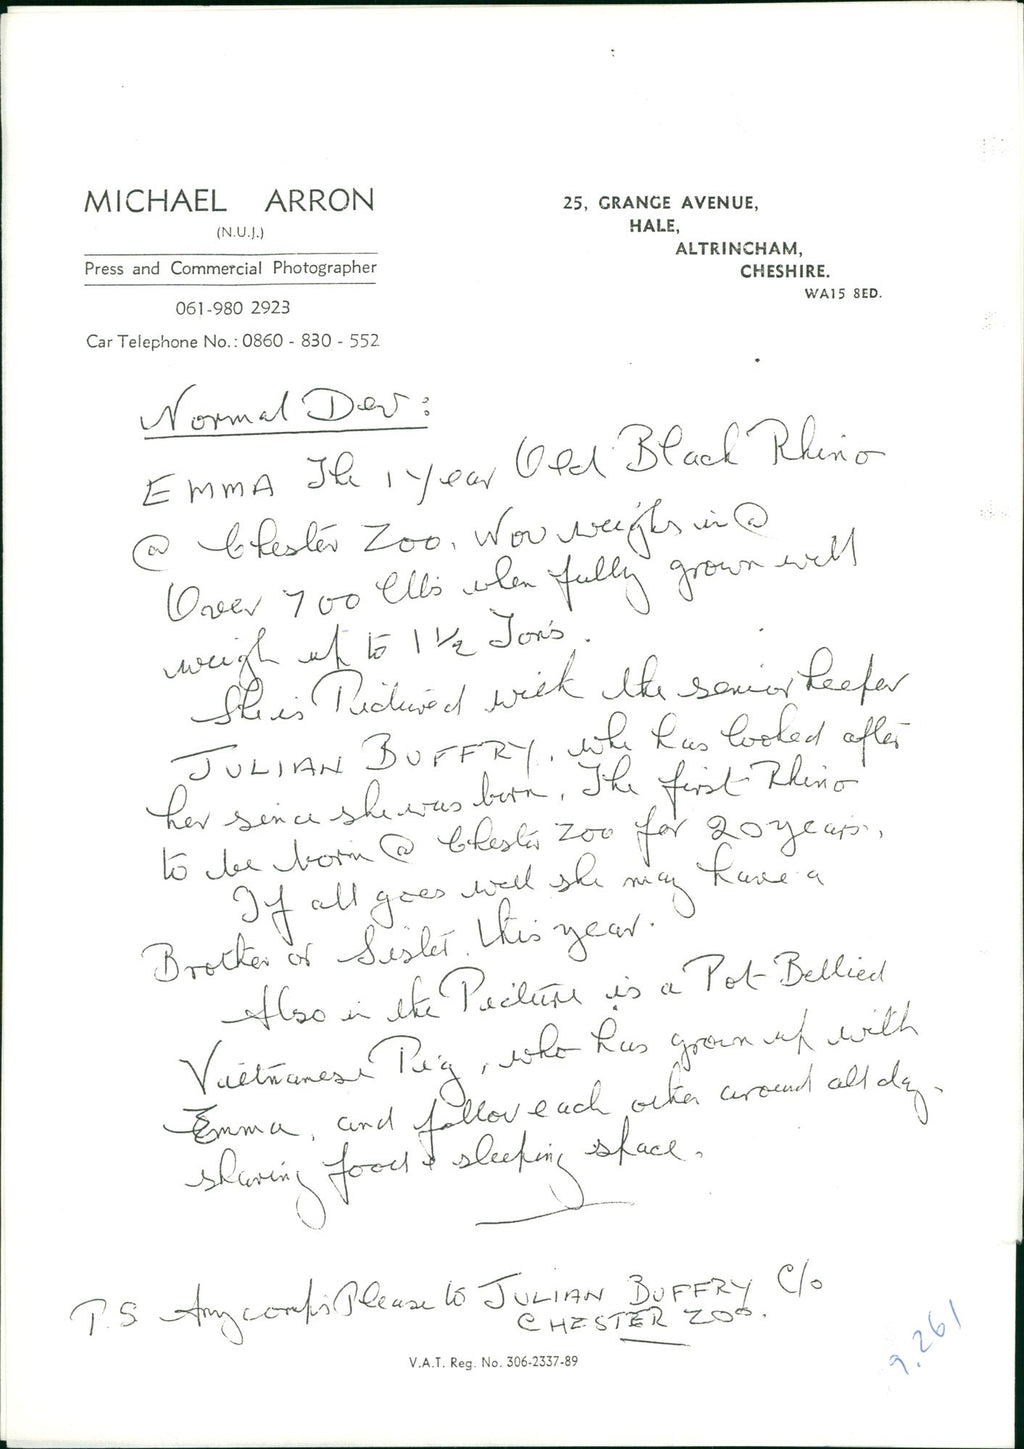 MICHAEL ARRON
(N.U.J.)
Press and Commercial Photographer
061-980 2923
Car Telephone No.: 0860 - 830 - 552
25, GRANGE AVENUE,
HALE,
ALTRINCHAM,
CHESHIRE.
WA15 8ED.
Normal Dev:
EMMA The 1 year Old Black Rhino
@ Chester Zoo. Now weighs in @
Over 700 llbs when fully grown will
weigh up to 1 1/2 Tons.
She is Pictured with the senior keeper
JULIAN BUFFRY, who has looked after
her since she was born, The first Rhino
to be born @ Chester Zoo for 20 years.
If all goes well she may have a
Brother or Sister this year.
Also in the Picture is a Pot-Bellied
Vietnamese Pig, who has grown up with
Emma, and follow each other around all day.
sharing food & sleeping space.
P.S Any comps Please to JULIAN BUFFRY C/o
CHESTER ZOO.
V.A.T. Reg. No. 306-2337-89
9.261